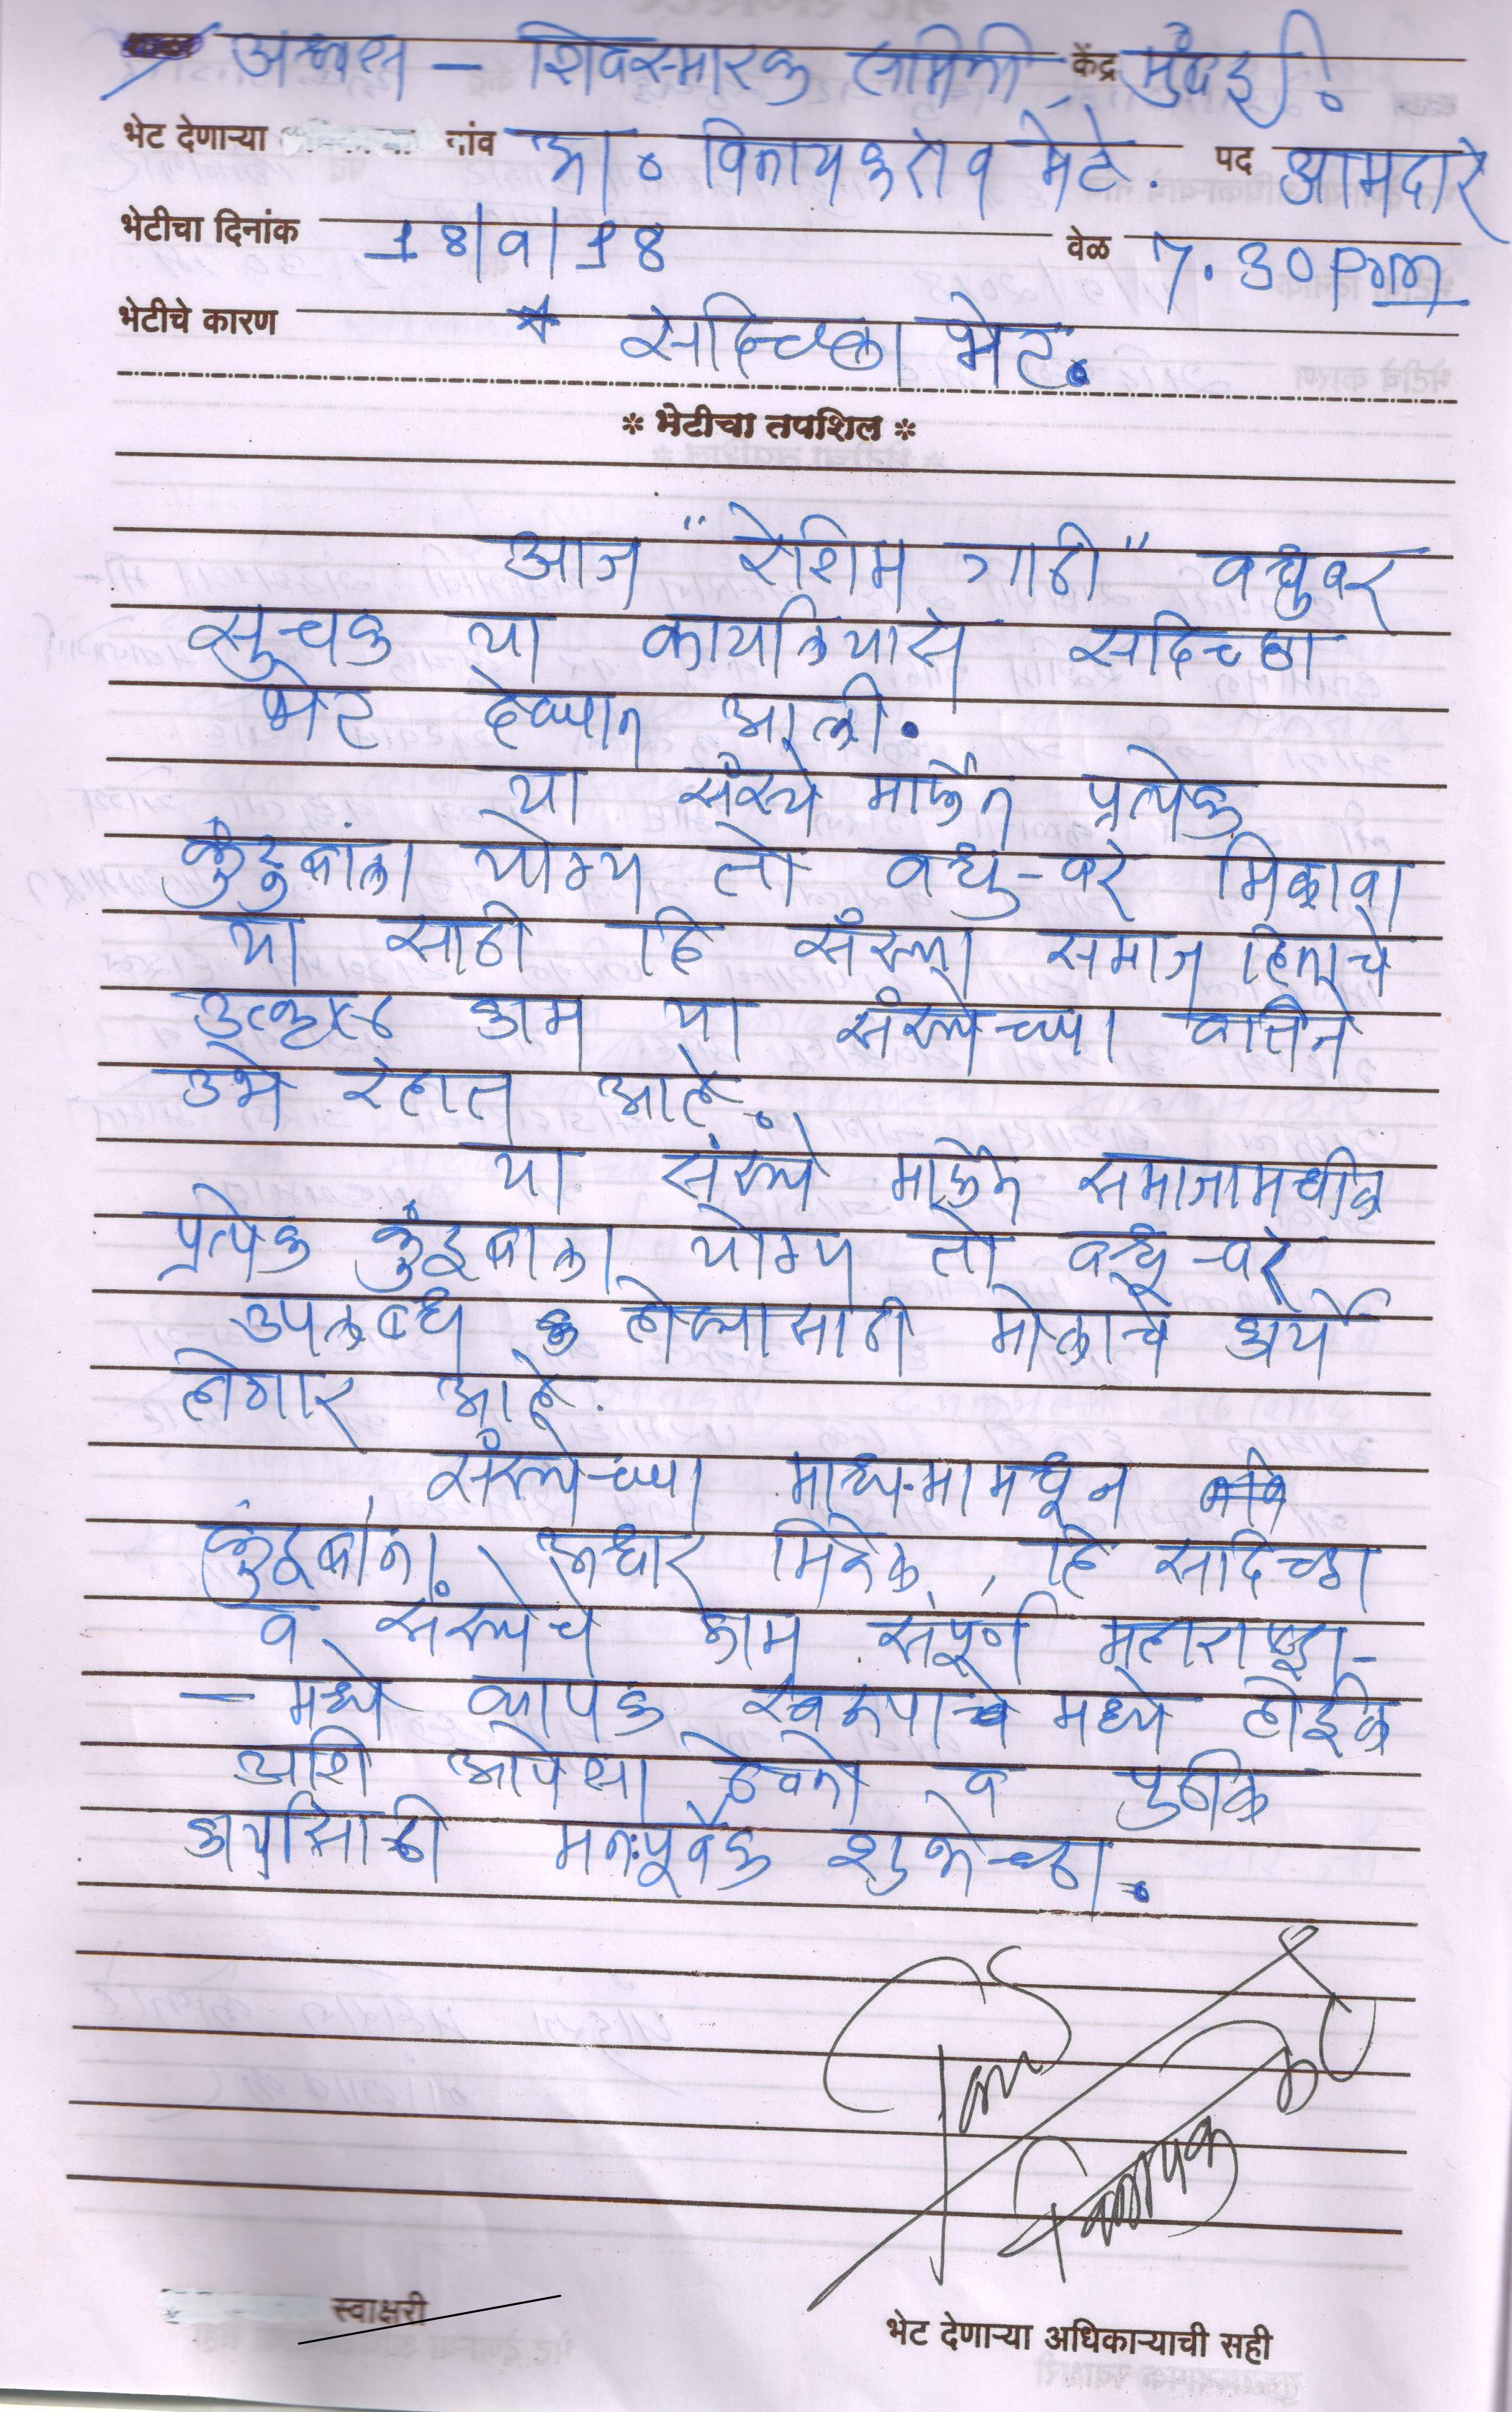 अध्यक्ष - शिवस्मारक समिती, केंद्र मुंबई.
भेट देणाऱ्या नांव मा. विनायकराव मेटे. पद आमदार
भेटीचा दिनांक 18/9/18 वेळ 7.30 pm
भेटीचे कारण * सदिच्छा भेट.
* भेटीचा तपशिल *
आज "रेशिम गाठी" वधुवर
सुचक या कार्यालयास सदिच्छा
भेट देण्यात आली.
या संस्थे मार्फत प्रत्येक
कुंटुबांला योग्य तो वधु-वर मिळावा
या साठी हि संस्था समाज हिताचे
उत्कृष्ठ काम या संस्थेच्या वतिने
उभे रहात आहे.
या संस्थे मार्फत समाजामधील
प्रत्येक कुंटुबाला योग्य तो वधु-वर
उपलब्ध होण्यासाठी मोलाचे कार्य
होणार आहे.
संस्थेच्या माध्यमामधून
कुंटुबांना आधार मिळेल, हि सदिच्छा
व संस्थेचे काम संपूर्ण महाराष्ट्रा-
- मध्ये व्यापक स्वरुपाचे मध्ये होईल
अशि आपेक्षा ठेवतो व पुढील
कार्यासाठी मनःपूर्वक शुभेच्छा.
स्वाक्षरी
भेट देणाऱ्या अधिकाऱ्याची सही